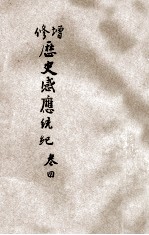 增修
歷史感應統紀 卷四